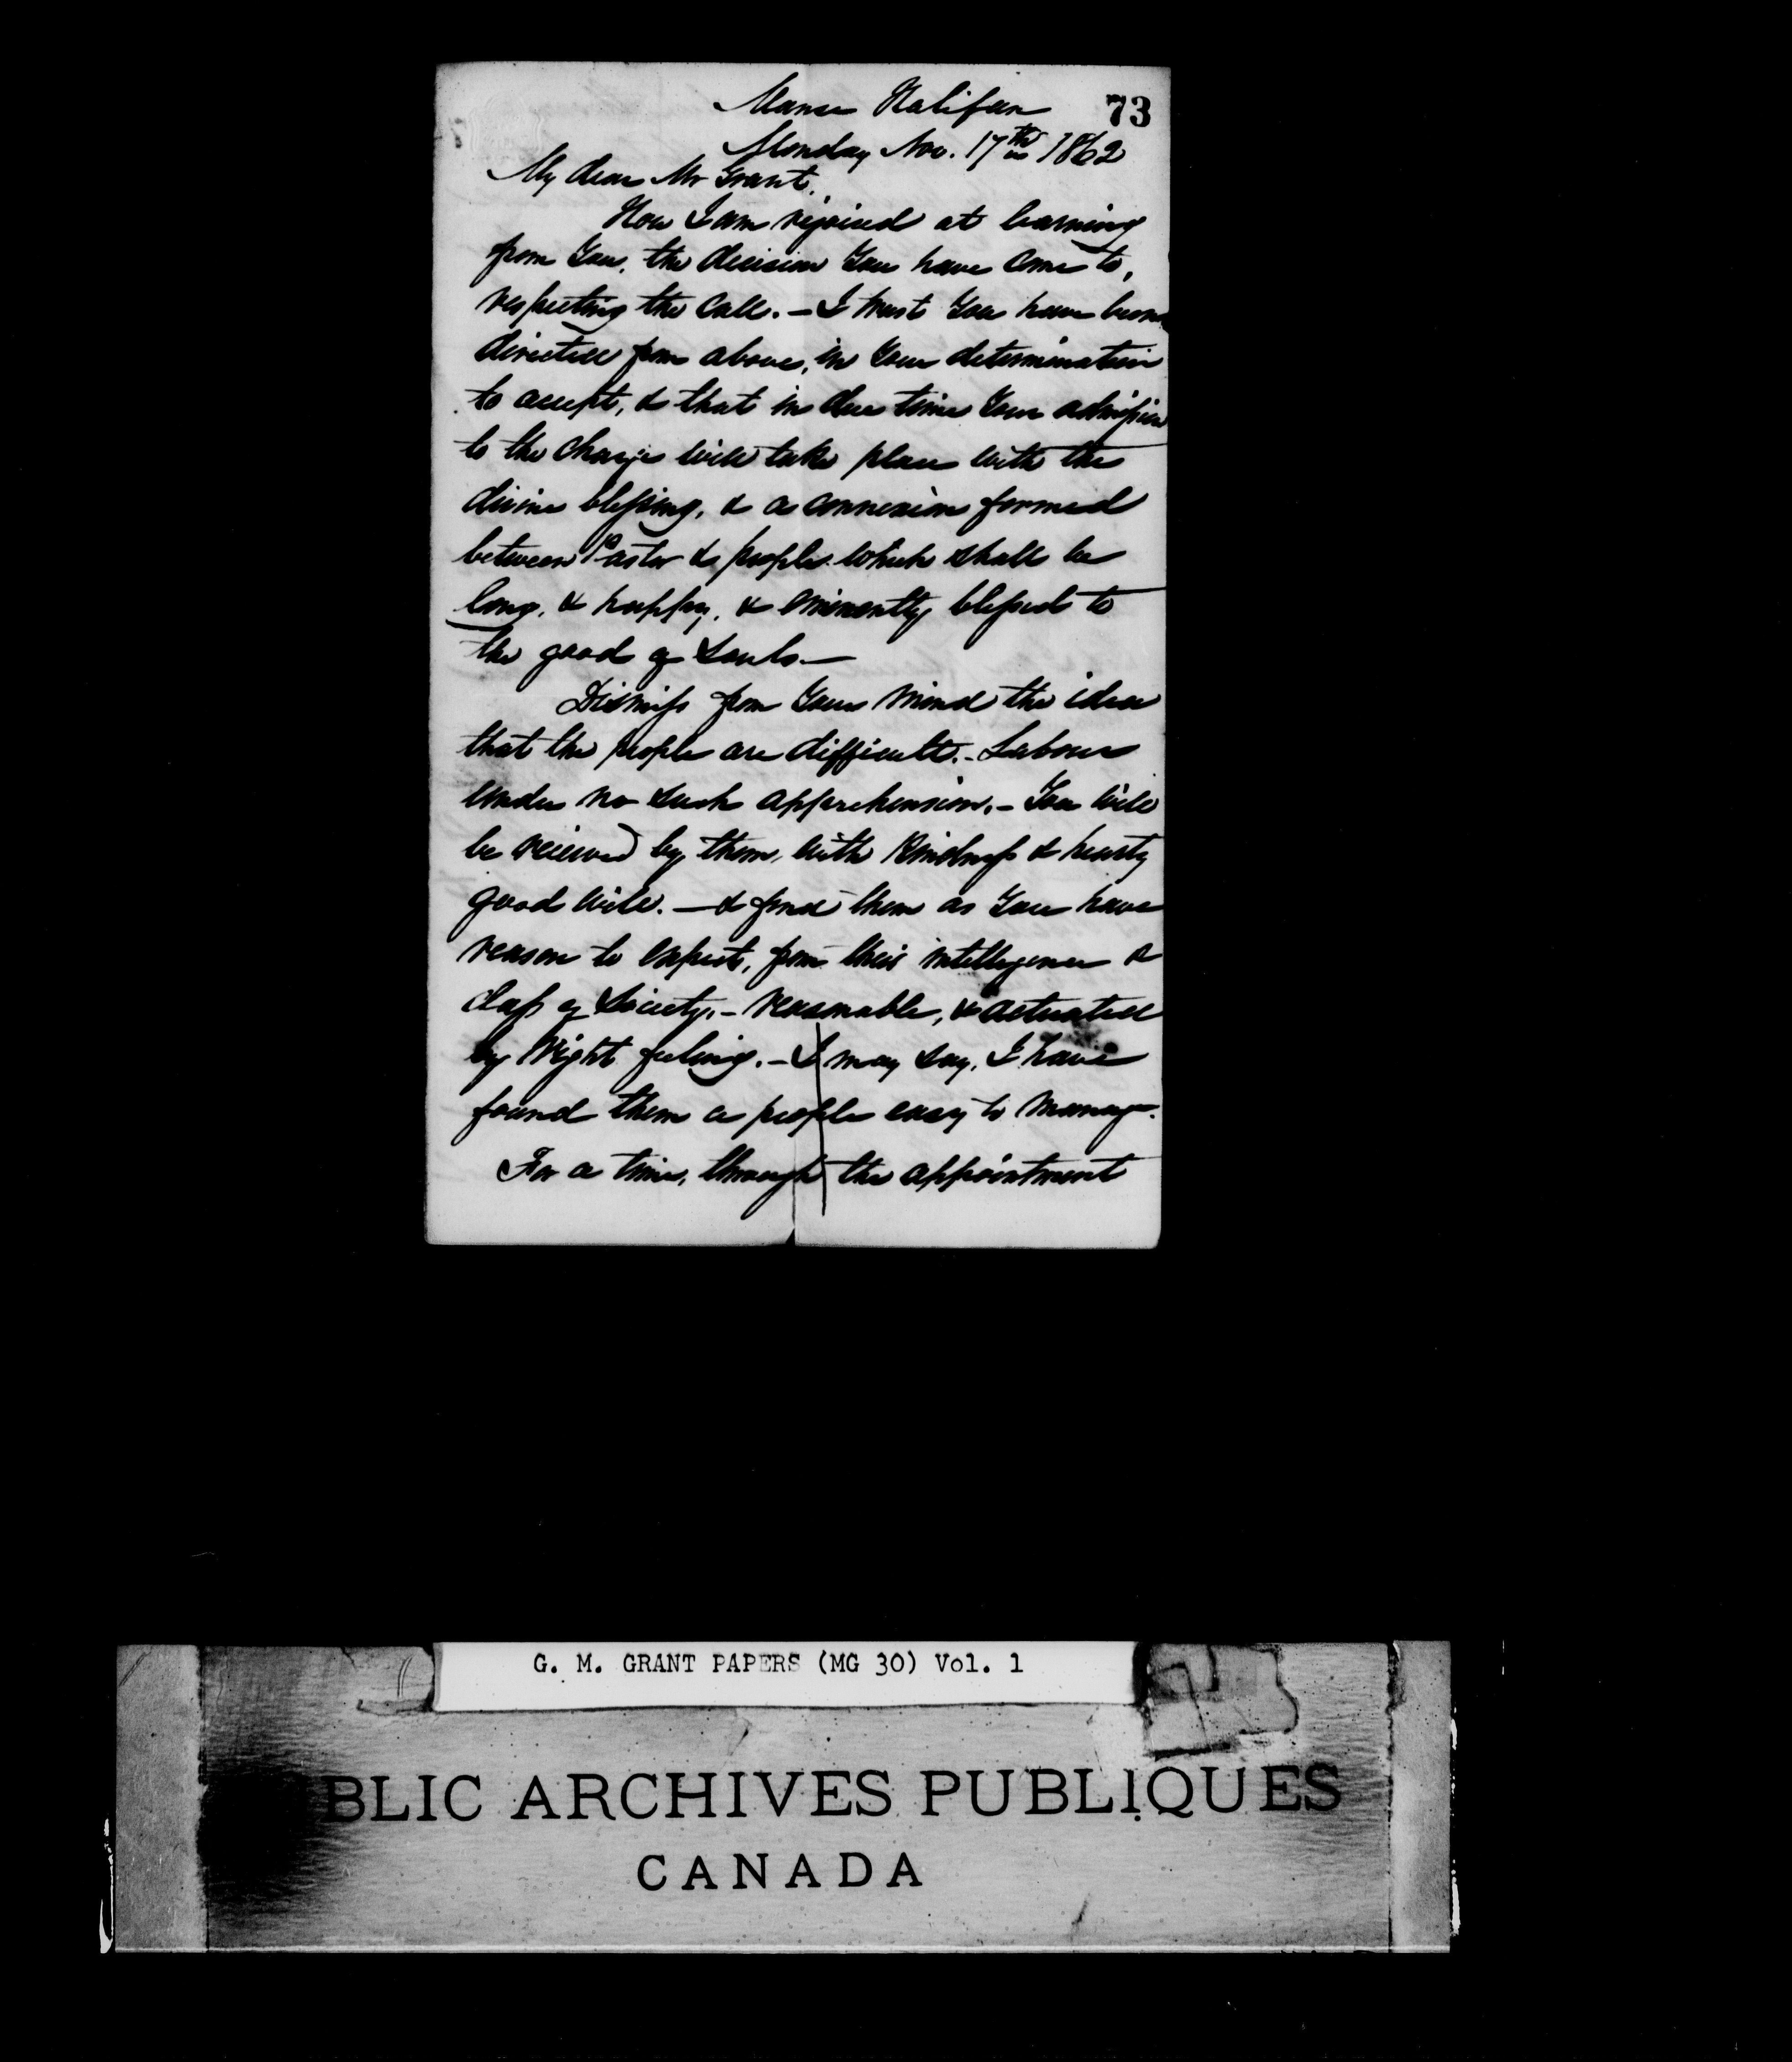 73
Manse Halifax
Monday Nov. 17th 1862
My dear Mr Grant,
How I am rejoiced at learning
from you, the decision you have come to,
respecting the Call. — I trust you have been
directed from above, in your determination
to accept, & that in due time your admission
to the charge will take place with the
divine blessing, & a connexion formed
between Pastor & people which shall be
long, & happy, & eminently blessed to
the good of Souls. —
Dismiss from your mind the idea
that the people are difficult. — Labour
under no such apprehension. — You will
be received by them, with kindness & hearty
good will. — & find them as you have
reason to expect, from their intelligence &
class of Society, — reasonable, & actuated
by right feeling. — I may say, I have
found them a people easy to manage.
For a time, through the appointment
G. M. GRANT PAPERS (MG 30) Vol. 1
BLIC ARCHIVES PUBLIQUES
CANADA